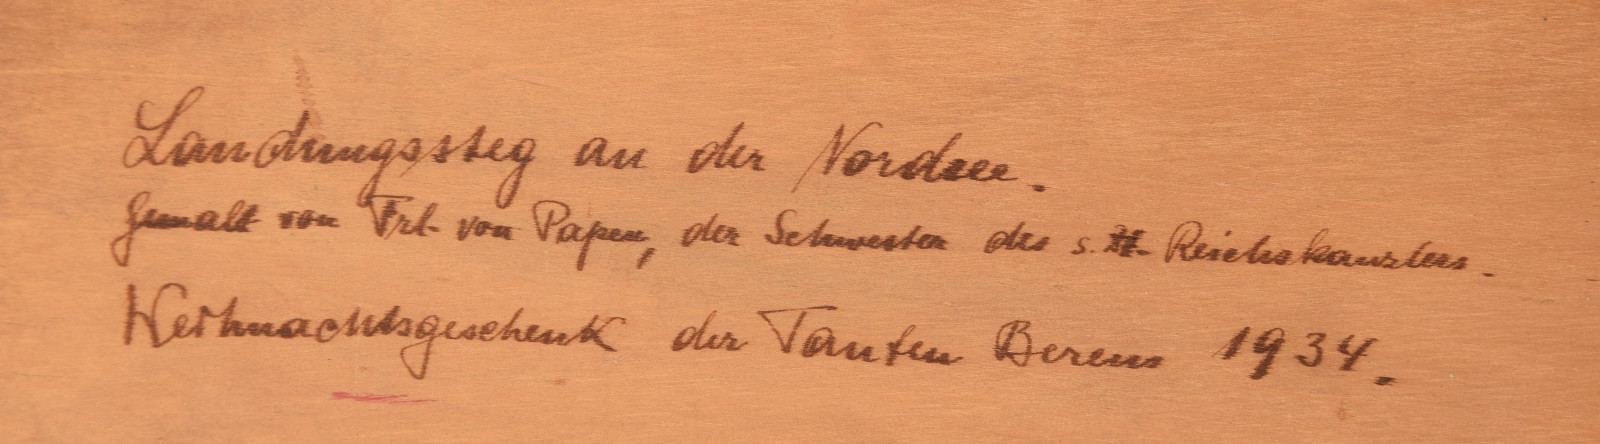 Landungssteg an der Nordsee.
Gemalt von Frl. von Papen, der Schwester des s. Zt. Reichskanzlers.
Weihnachtsgeschenk der Tanten Berens 1934.